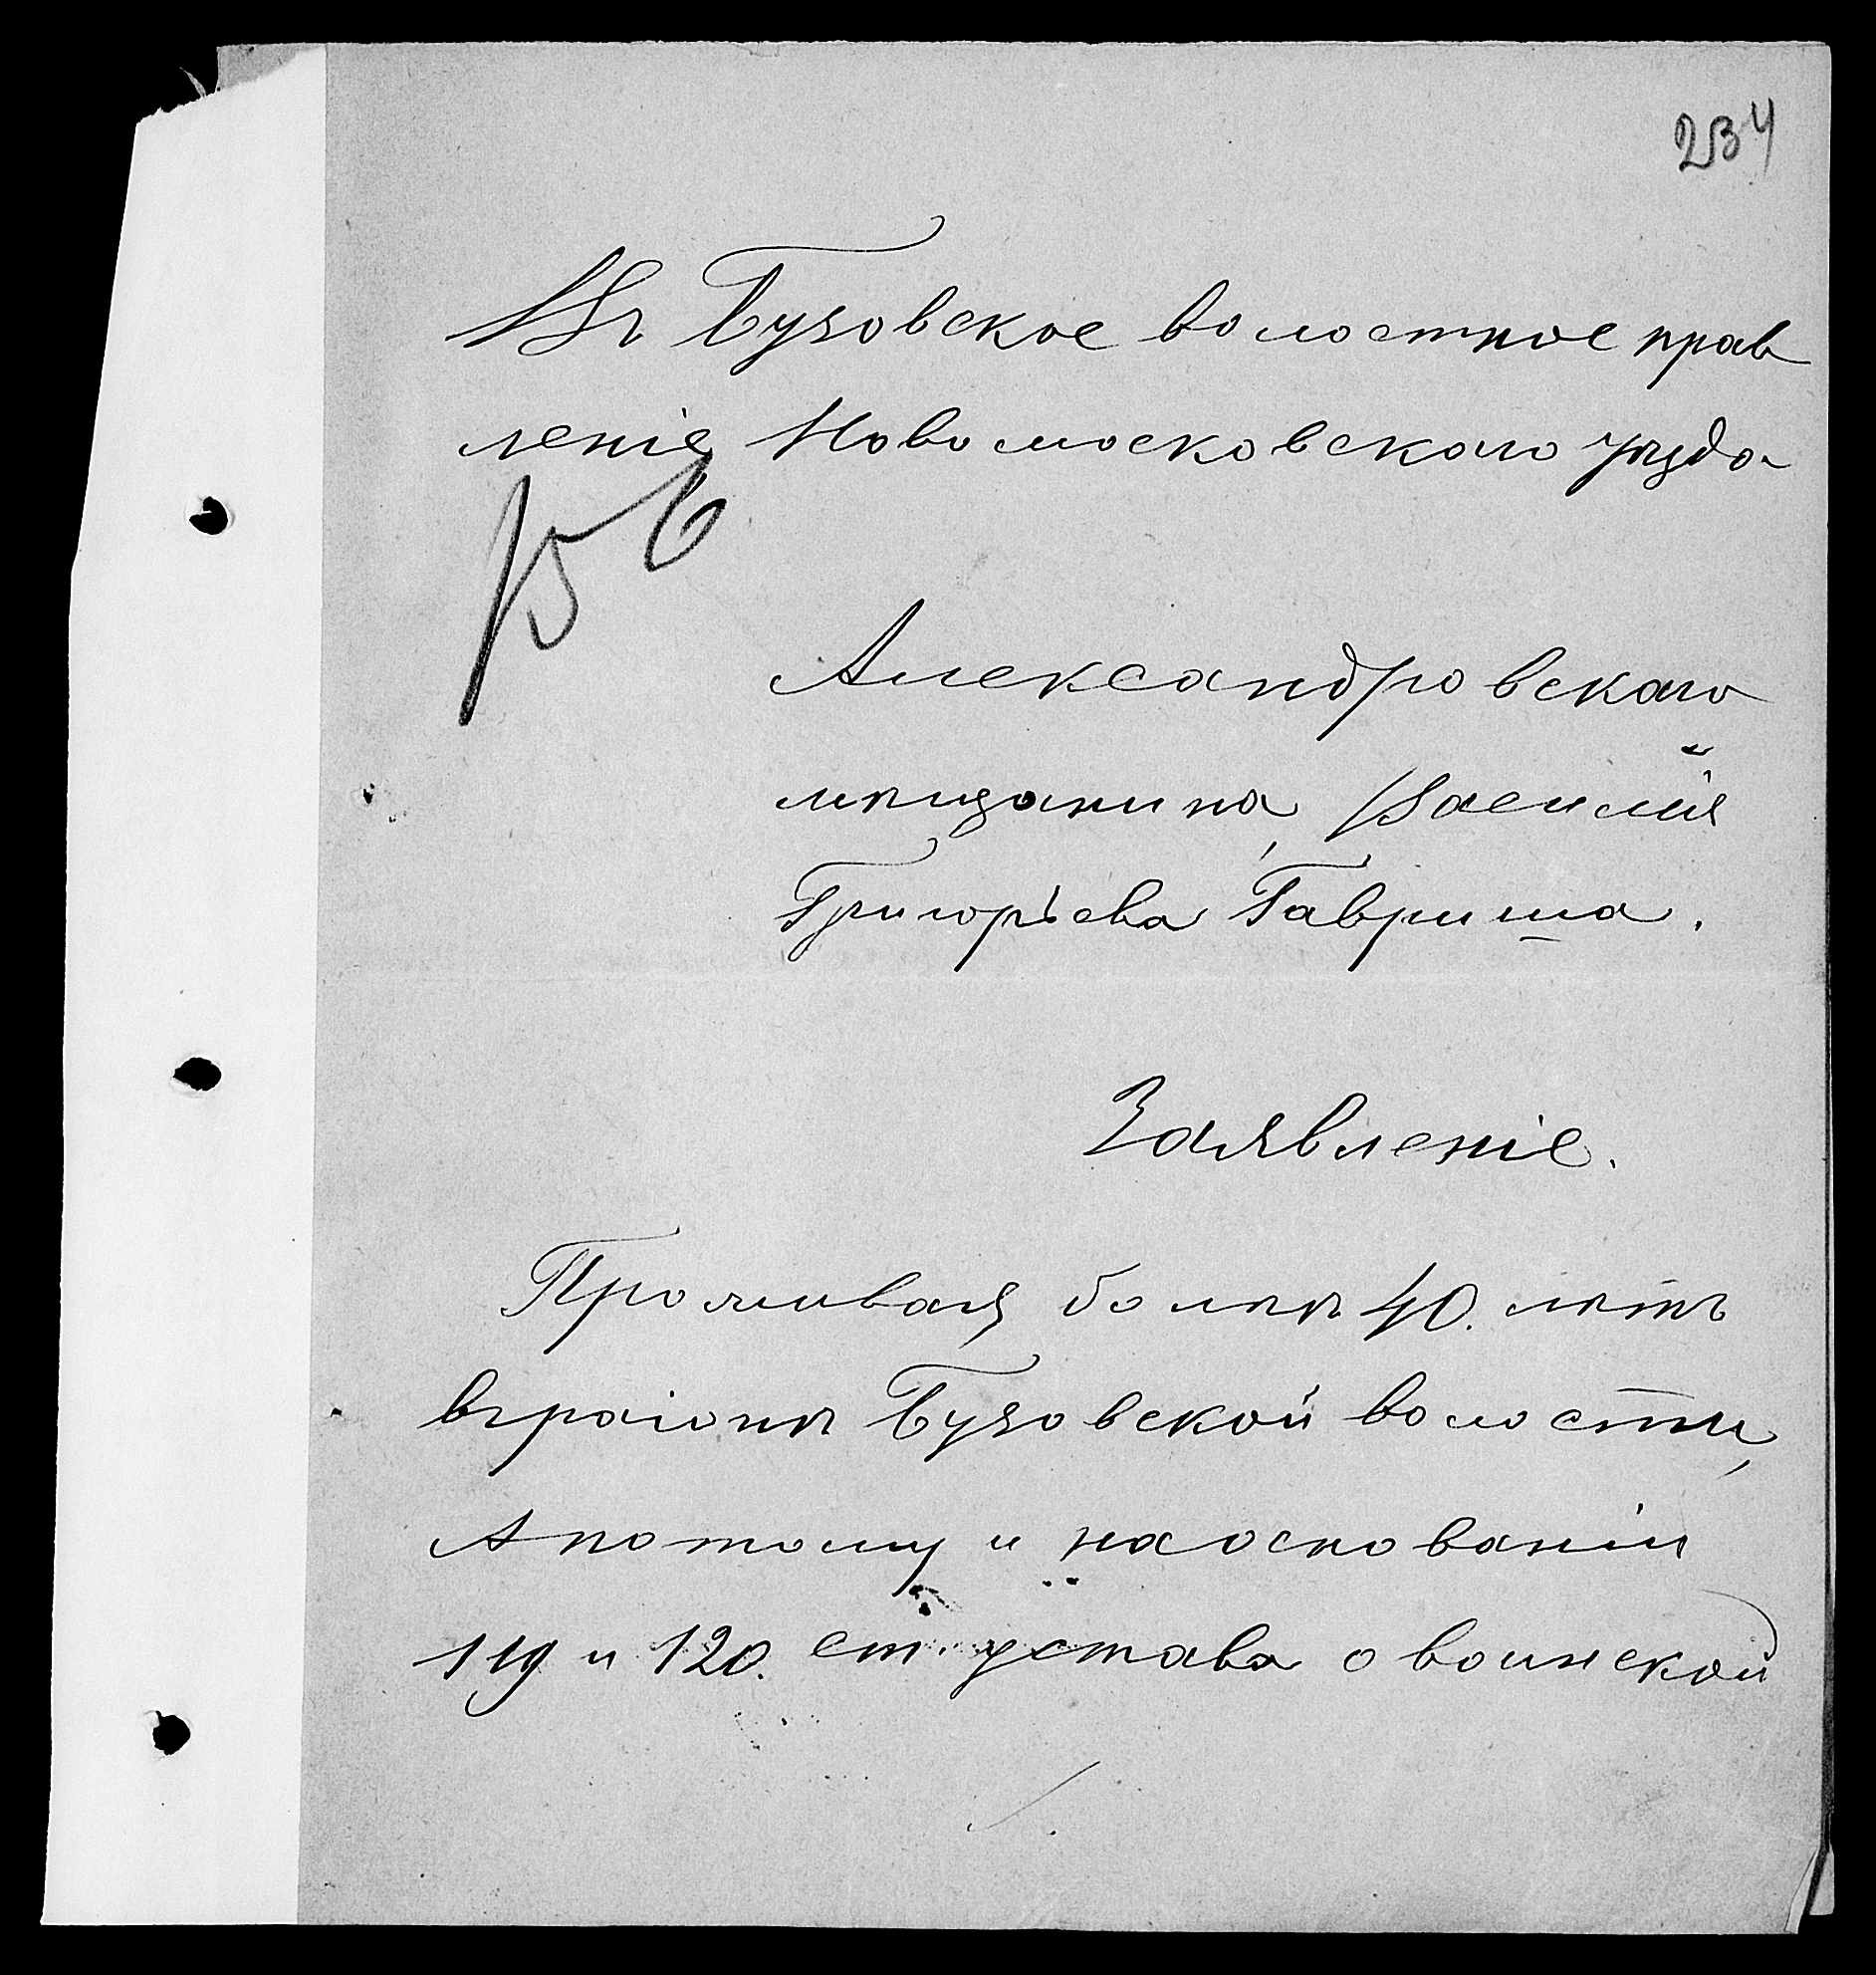 234
Въ Бузовское волостное прав
леніе Новомосковскаго уѣзда
Александровскаго
мѣщанина, Василія
Григорьева Гавриша.
Заявленіе.
Проживая болѣѣ 40. лѣтъ
въ раіонѣ Бузовской волости,
А потому и на основаніи
119 и 120. ст. устава о воинской